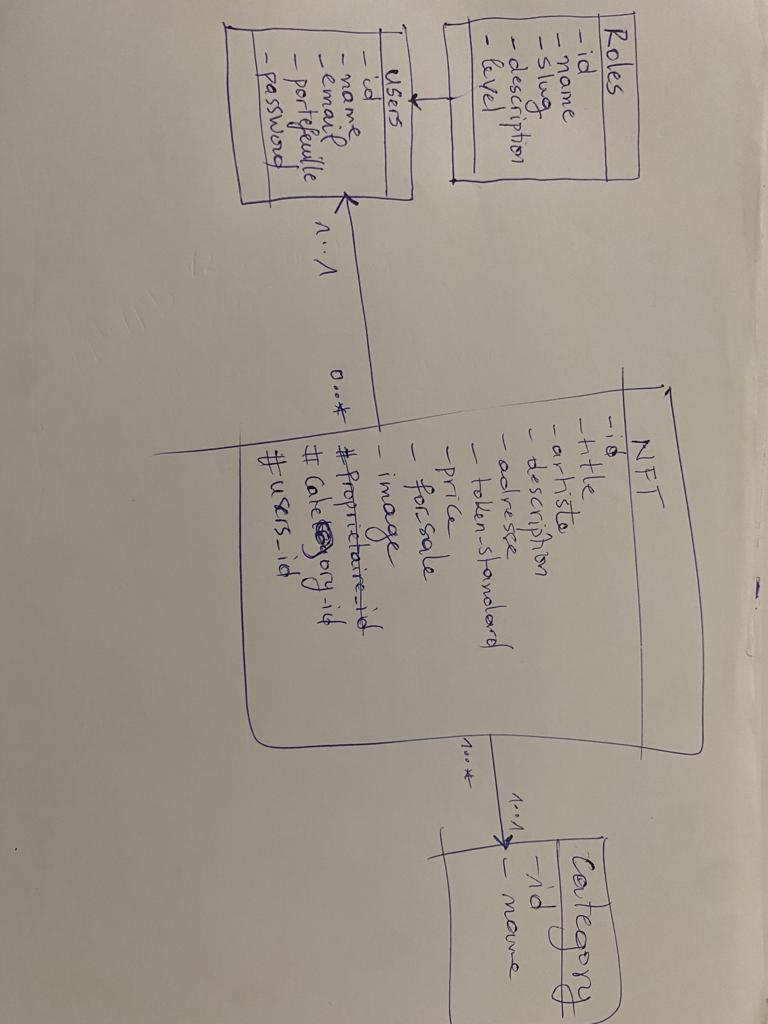 Roles
- id
- name
- slug
- description
- level
users
- id
- name
- email
- portefeuille
- password
1..1
0...*
NFT
- id
- title
- artiste
- description
- adresse
- token_standard
- price
- forsale
- image
# Proprietaire_id
# Category_id
# users_id
1...*
1..1
Category
- id
- name